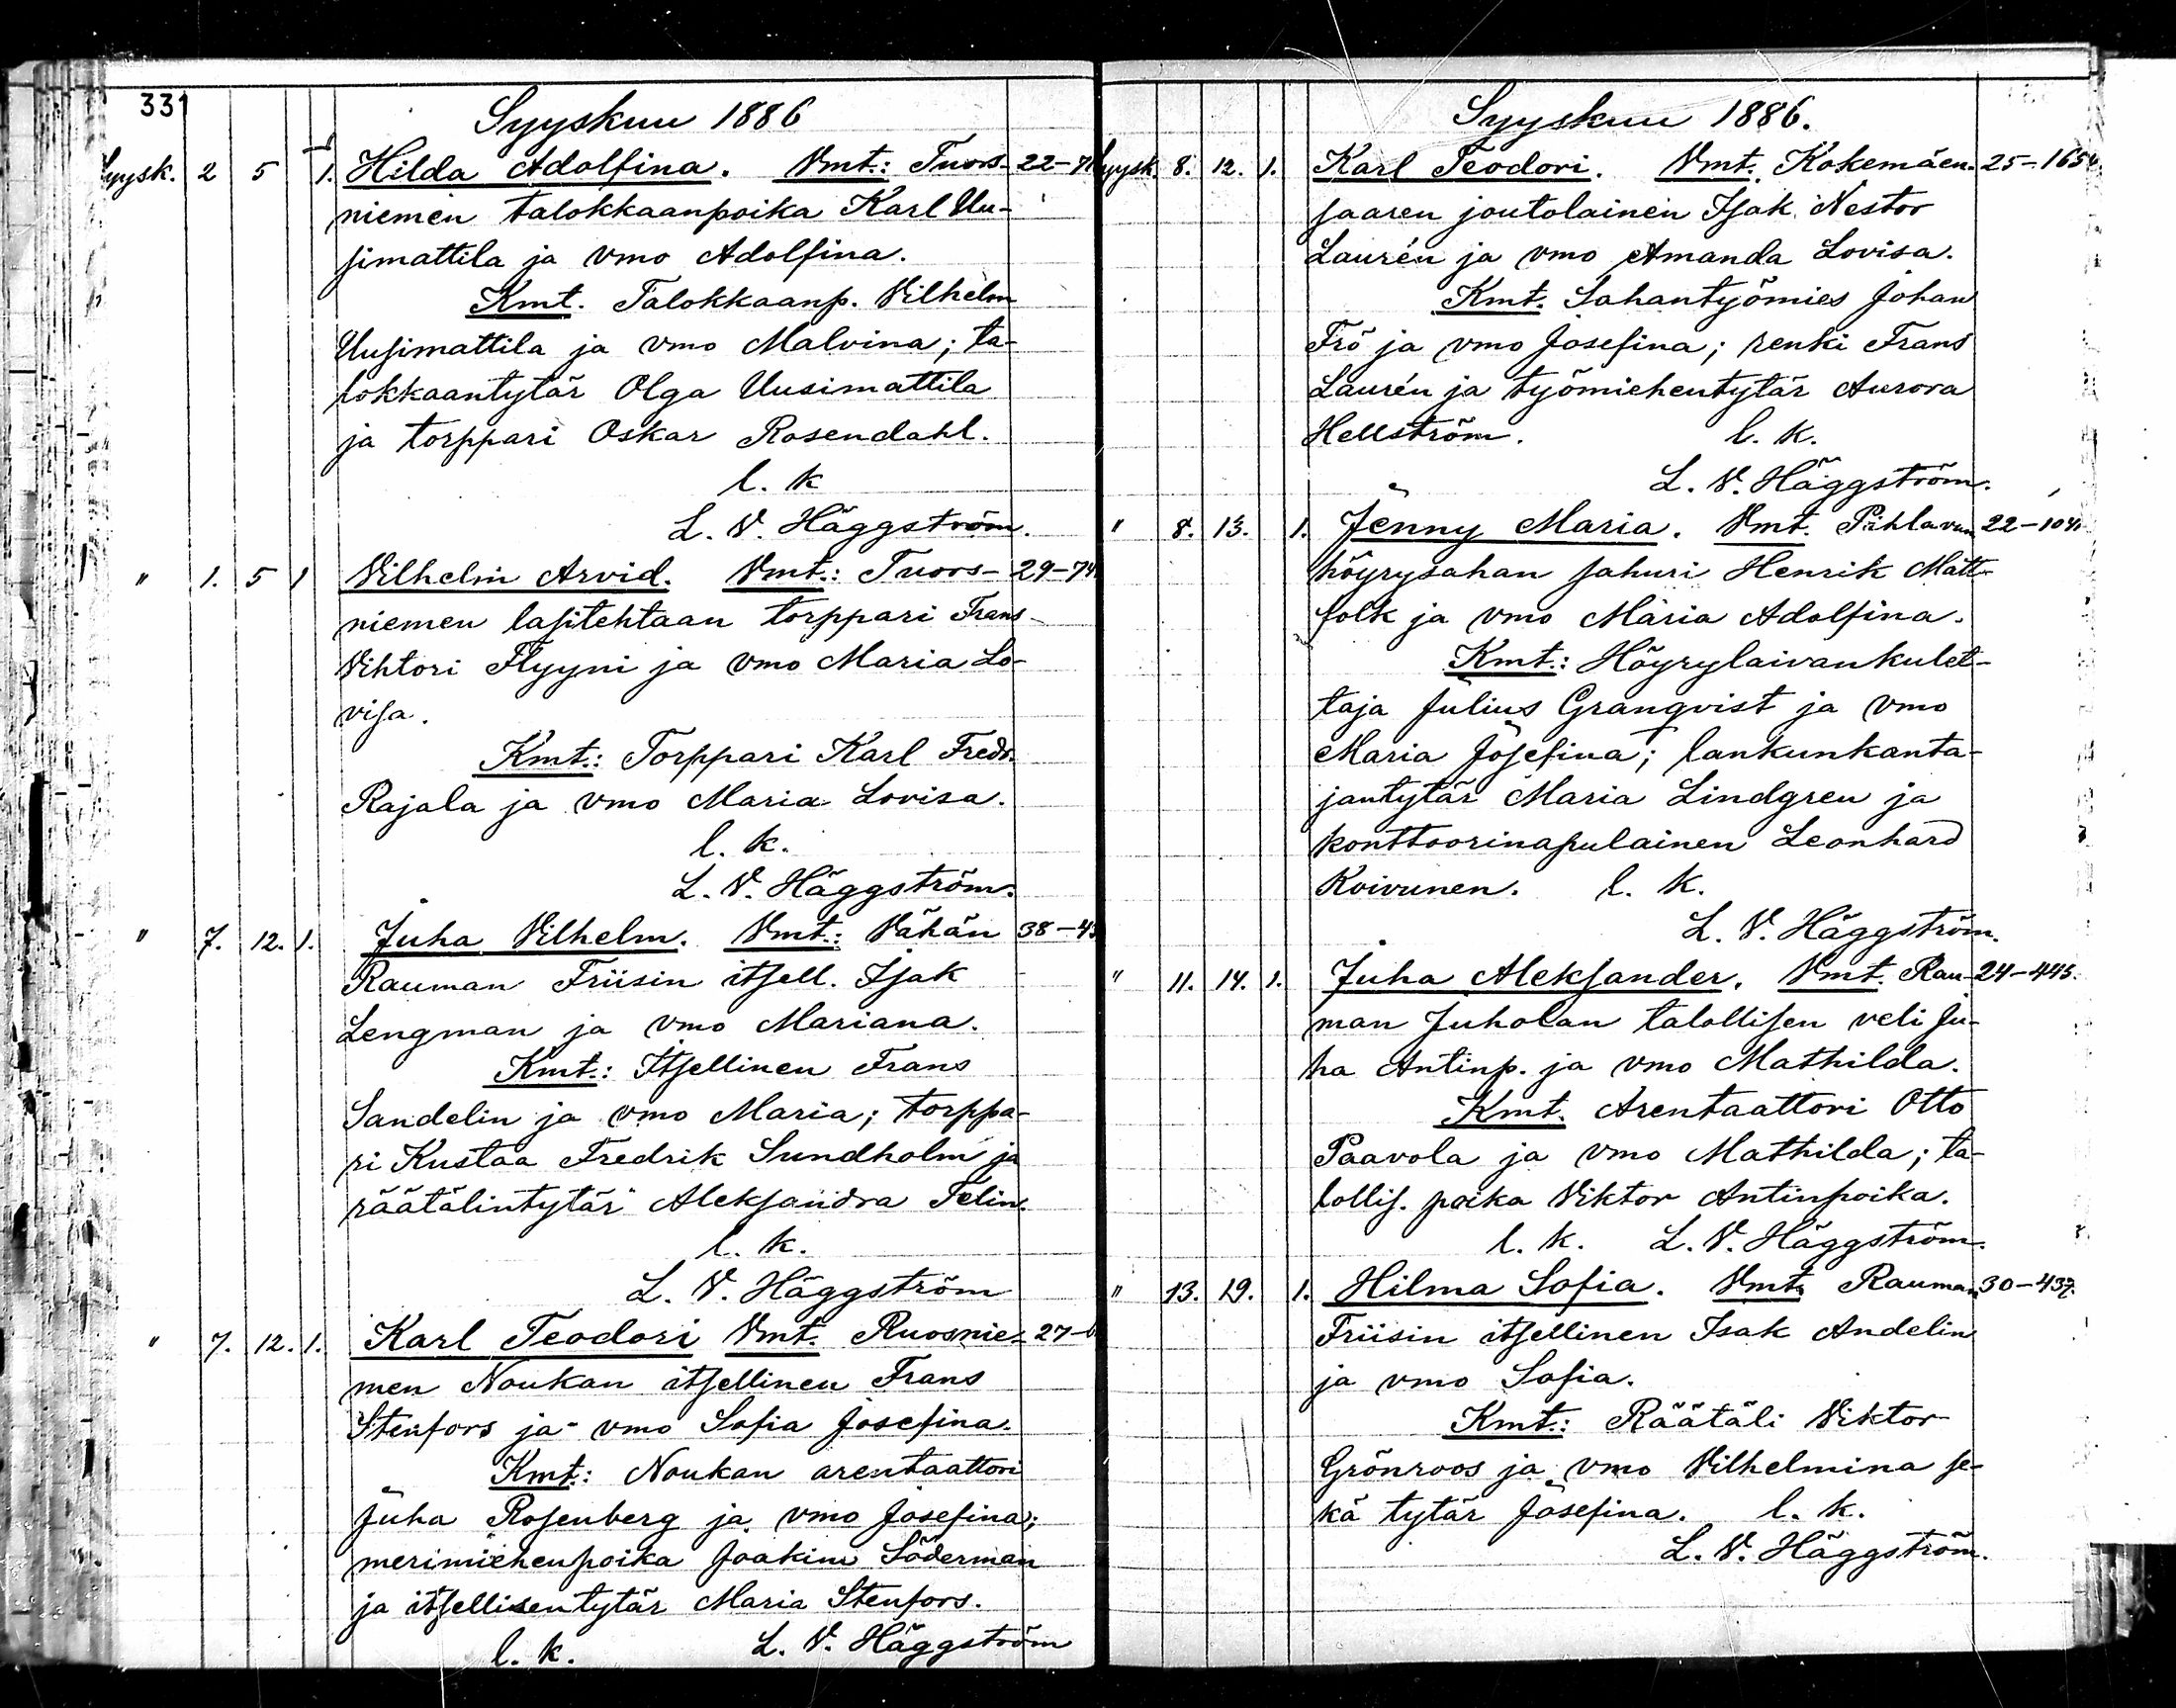 331
Syyskuu 1886
Syysk. 2 5 1. Hilda Adolfina. Vmt.: Tuors- 22-71
niemen talokkaanpoika Karl Uu-
simattila ja vmo Adolfina.
Kmt. Talokkaanp. Vilhelm
Uusimattila ja vmo Malvina; ta-
lokkaantytär Olga Uusimattila
ja torppari Oskar Rosendahl.
l. k
L. V. Häggström.
" 1. 5 1 Vilhelm Arvid. Vmt.: Tuors- 29-74
niemen lasitehtaan torppari Frans
Vihtori Flyyni ja vmo Maria Lo-
visa.
Kmt.: Torppari Karl Fredr.
Rajala ja vmo Maria Lovisa.
l. k.
L. V. Häggström.
" 7. 12. 1. Juha Vilhelm. Vmt.: Vähän 38-43
Rauman Friisin itsell. Isak
Lengman ja vmo Mariana.
Kmt.: Itsellinen Frans
Sandelin ja vmo Maria; torppa-
ri Kustaa Fredrik Sundholm ja
räätälintytär Aleksandra Telin.
l. k.
L. V. Häggström
" 7. 12. 1. Karl Teodori Vmt. Ruosnie- 27-
men Noukan itsellinen Frans
Stenfors ja vmo Sofia Josefina.
Kmt.: Noukan arentaattori
Juha Rosenberg ja vmo Josefina;
merimiehenpoika Joakim Söderman
ja itsellisentytär Maria Stenfors.
l. k. L. V. Häggström
Syyskuu 1886.
Syysk. 8. 12. 1. Karl Teodori. Vmt. Kokemäen- 25-165
saaren joutolainen Isak Nestor
Laurén ja vmo Amanda Lovisa.
Kmt. Sahantyömies Johan
Frö ja vmo Josefina; renki Frans
Laurén ja työmiehentytär Aurora
Hellström. l. k.
L. V. Häggström.
" 8. 13. 1. Jenny Maria. Vmt. Pihlavan 22-104
höyrysahan sahuri Henrik Mätt-
folk ja vmo Maria Adolfina.
Kmt.: Höyrylaivankulet-
taja Julius Granqvist ja vmo
Maria Josefina; lankunkanta-
jantytär Maria Lindgren ja
konttoorinapulainen Leonhard
Koivunen. l. k.
L. V. Häggström.
" 11. 14. 1. Juha Aleksander. Vmt. Rau- 24-445.
man Juholan talollisen veli Ju-
ha Antinp. ja vmo Mathilda.
Kmt. Arentaattori Otto
Paavola ja vmo Mathilda; ta-
lollis. poika Viktor Antinpoika.
l. k. L. V. Häggström.
" 13. 19. 1. Hilma Sofia. Vmt. Rauman 30-437.
Friisin itsellinen Isak Andelin
ja vmo Sofia.
Kmt.: Räätäli Viktor
Grönroos ja vmo Vilhelmina se-
kä tytär Josefina. l. k.
L. V. Häggström.